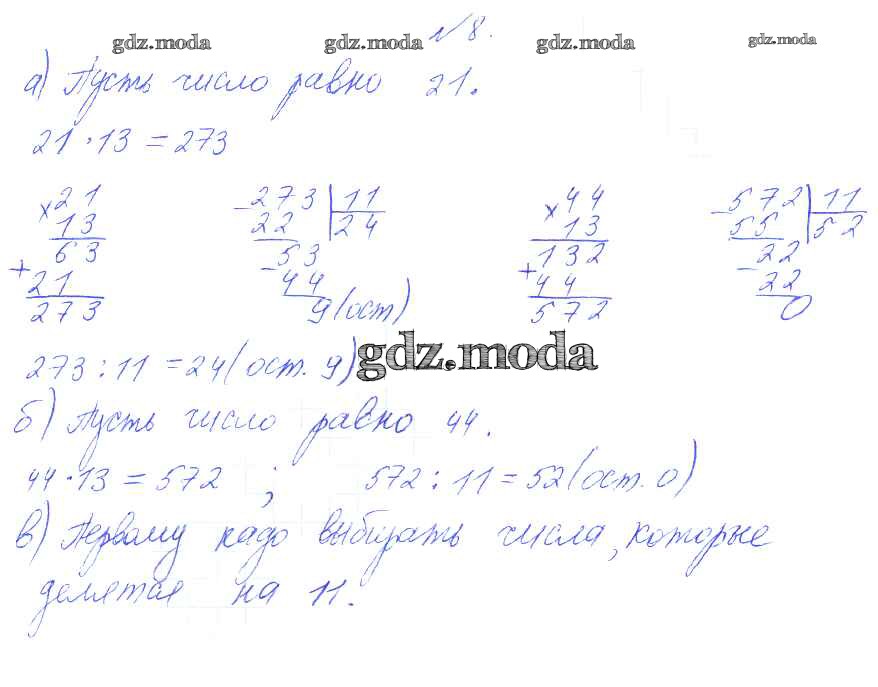 №8.
gdz.moda gdz.moda gdz.moda gdz.moda
а) Пусть число равно 21.
21 · 13 = 273
× 21
13
63
+ 21
273
- 273 | 11
22 | 24
- 53
44
9 (ост)
× 44
13
132
+ 44
572
- 572 | 11
55 | 52
- 22
22
0
273 : 11 = 24 (ост. 9)
gdz.moda
б) Пусть число равно 44.
44 · 13 = 572 ; 572 : 11 = 52 (ост. 0)
в) Первому надо выбирать числа, которые
делятся на 11.